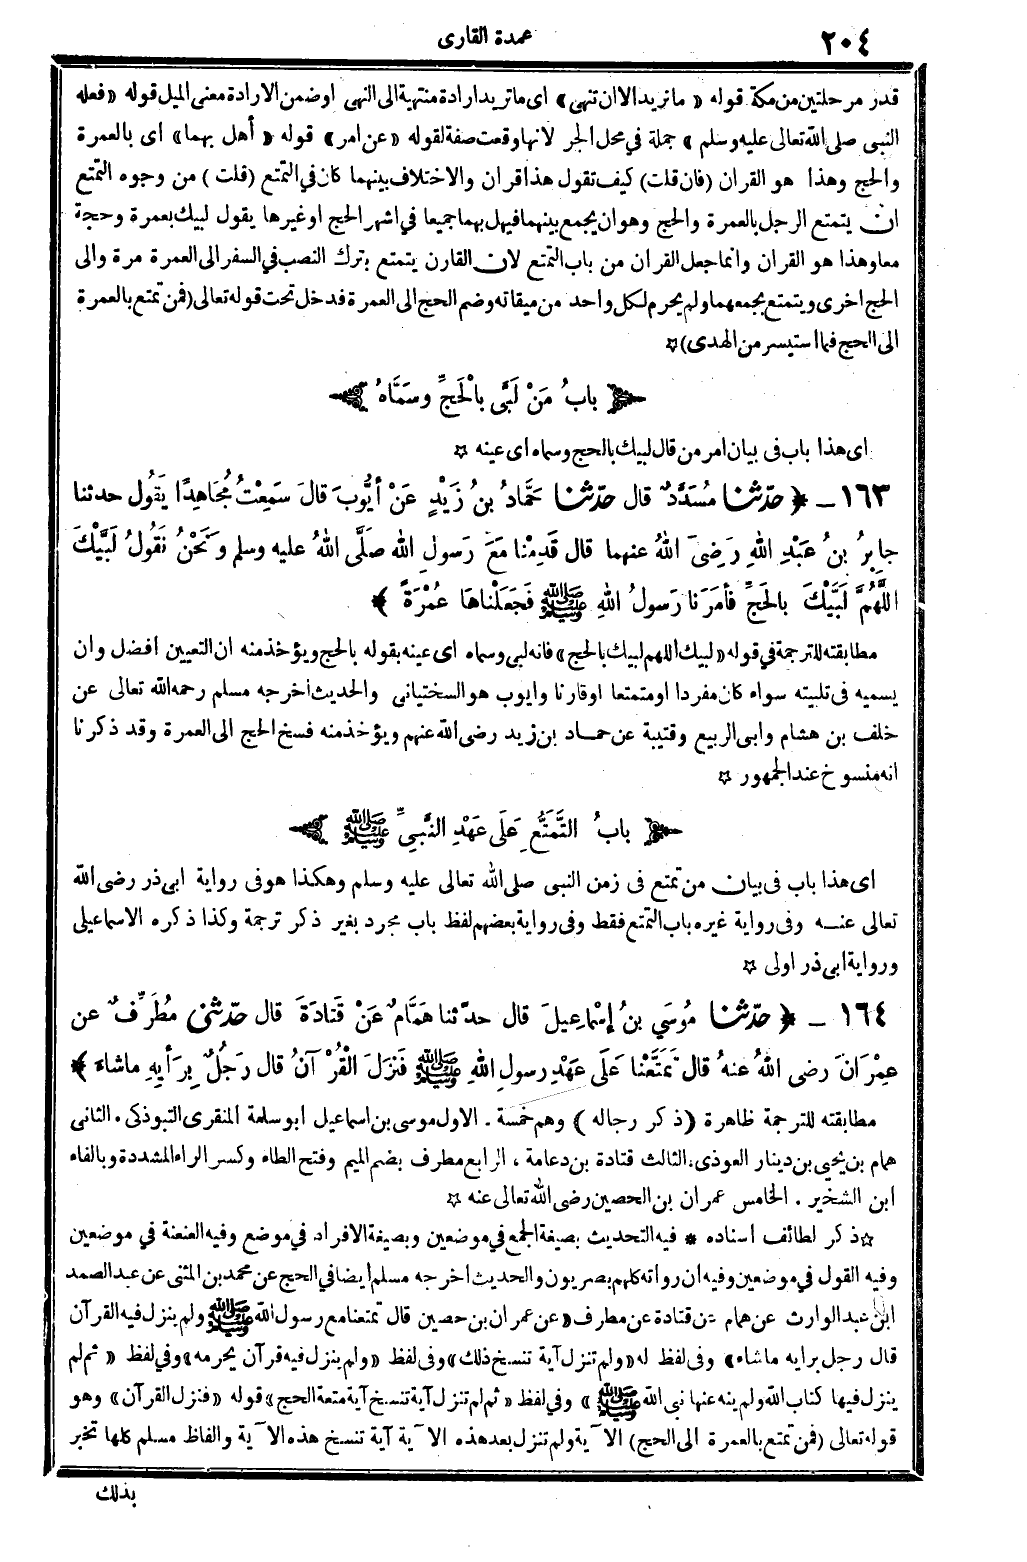 ٢٠٤
عمدة القارى
قدر مرحلتين من مكة قوله « ماتريد الا ان تنهى » اى ماتريد ارادة منتهية الى النهى او ضمن الارادة معنى الميل قوله « فعله
النبى صلى الله تعالى عليه وسلم » جملة في محل الجر لانها وقعت صفة لقوله « عن امر » قوله « أهل بهما » اى بالعمرة
والحج وهذا هو القران (فان قلت) كيف تقول هذا قران والاختلاف بينهما كان في التمتع (قلت) من وجوه التمتع
ان يتمتع الرجل بالعمرة والحج وهوان يجمع بينهما فيهل بهما جميعا في اشهر الحج اوغيرها يقول لبيك بعمرة وحجة
معا وهذا هو القران وانما جعل القران من باب التمتع لان القارن يتمتع بترك النصب في السفر الى العمرة مرة والى
الحج اخرى ويتمتع بجمعهما ولم يحرم لكل واحد من ميقاته وضم الحج الى العمرة فدخل تحت قوله تعالى (فمن تمتع بالعمرة
الى الحج فما استيسر من الهدى) ☆
﴿ بابُ مَنْ لَبَّى بالْحَجِّ وسَمَّاهُ ﴾
اى هذا باب فى بيان امر من قال لبيك بالحج وسماه اى عينه ☆
١٦٣ ـ ﴿ حدّثنا مُسَدَّدٌ قال حدّثنا حَمَّادُ بنُ زَيْدٍ عَنْ أيُّوبَ قالَ سَمِعْتُ مُجَاهِدًا يَقُول حدثنا
جابِرُ بنُ عَبْدِ اللهِ رَضِىَ اللهُ عنهما قال قَدِمْنا مَعَ رَسولِ اللهِ صلَّى اللهُ عليه وسلم وَنَحْنُ نَقُولُ لَبَّيْكَ
اللَّهُمَّ لَبَّيْكَ بالحَجِّ فأمَرَنا رَسولُ اللهِ ﷺ فَجَعَلْناهَا عُمْرَةً ﴾
مطابقته للترجمة في قوله « لبيك اللهم لبيك بالحج » فانه لبى وسماه اى عينه بقوله بالحج ويؤخذ منه ان التعيين افضل وان
يسميه فى تلبيته سواء كان مفردا اومتمتعا اوقارنا وايوب هو السختيانى والحديث اخرجه مسلم رحمه الله تعالى عن
خلف بن هشام وابى الربيع وقتيبة عن حماد بن زيد رضى الله عنهم ويؤخذ منه فسخ الحج الى العمرة وقد ذكرنا
انه منسوخ عند الجمهور ☆
﴿ بابُ التَّمَتُّعِ عَلَى عَهْدِ النَّبىِّ ﷺ ﴾
اى هذا باب فى بيان من تمتع فى زمن النبى صلى الله تعالى عليه وسلم وهكذا هو فى رواية ابى ذر رضى الله
تعالى عنه وفى رواية غيره باب التمتع فقط وفى رواية بعضهم لفظ باب مجرد بغير ذكر ترجمة وكذا ذكره الاسماعيلى
ورواية ابى ذر اولى ☆
١٦٤ ـ ﴿ حدّثنا مُوسَي بنُ إسْماعِيلَ قال حدثنا هَمَّامٌ عَنْ قَتَادَةَ قال حدّثنى مُطَرِّفٌ عن
عِمْرَانَ رضى اللهُ عنهُ قال تَمَتَّعْنا عَلَى عَهْدِ رسولِ اللهِ ﷺ فَنزَلَ الْقُرْآنُ قال رَجُلٌ بِرَأيِهِ ماشاءَ ﴾
مطابقته للترجمة ظاهرة (ذكر رجاله) وهم خمسة . الاول موسى بن اسماعيل ابو سلمة المنقرى التبوذكى . الثانى
همام بن يحيى بن دينار العوذى . الثالث قتادة بن دعامة . الرابع مطرف بضم الميم وفتح الطاء وكسر الراء المشددة وبالفاء
ابن الشخير . الخامس عمران بن الحصين رضى الله تعالى عنه ☆
☆ذكر لطائف اسناده * فيه التحديث بصيغة الجمع في موضعين وبصيغة الافراد في موضع وفيه العنعنة في موضعين
وفيه القول في موضعين وفيه ان رواته كلهم بصريون والحديث اخرجه مسلم أيضا في الحج عن محمد بن المثنى عن عبد الصمد
ابن عبد الوارث عن همام عن قتادة عن مطرف « عن عمران بن حصين قال تمتعنا مع رسول الله ﷺ ولم ينزل فيه القرآن
قال رجل برايه ماشاء » وفى لفظ له « ولم تنزل آية تنسخ ذلك » وفى لفظ « ولم ينزل فيه قرآن يحرمه » وفي لفظ « ثم لم
ينزل فيها كتاب الله ولم ينه عنها نبى الله ﷺ » وفي لفظ « ثم لم تنزل آية تنسخ آية متعة الحج » قوله « فنزل القرآن » وهو
قوله تعالى (فمن تمتع بالعمرة الى الحج) الآية ولم تنزل بعد هذه الآية آية تنسخ هذه الآية والفاظ مسلم كلها تخبر
بذلك